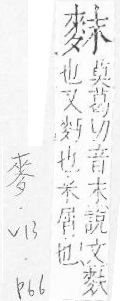 䴲
莫葛切音末說文麩
也又麪也米屑也
麥
V13
p66